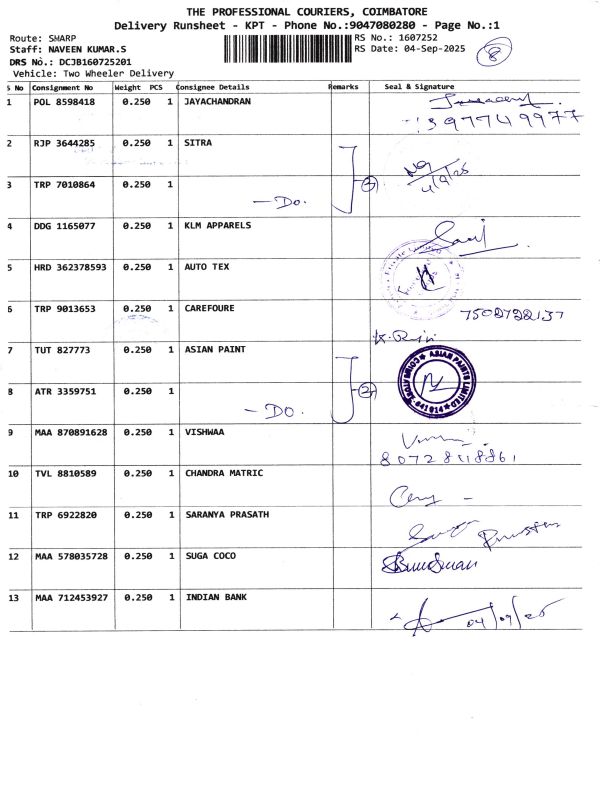 THE PROFESSIONAL COURIERS, COIMBATORE
Delivery Runsheet - KPT - Phone No.:9047080280 - Page No.:1
Route: SMARP RS No.: 1607252
Staff: NAVEEN KUMAR.S RS Date: 04-Sep-2025 8
DRS No.: DCJB160725201
Vehicle: Two Wheeler Delivery
S No Consignment No Weight PCS Consignee Details Remarks Seal & Signature
1 POL 8598418 0.250 1 JAYACHANDRAN
2 RJP 3644285 0.250 1 SITRA
4/9/25
3 TRP 7010864 0.250 1
— Do. 2
4 DDG 1165077 0.250 1 KLM APPARELS
5 HRD 362378593 0.250 1 AUTO TEX
6 TRP 9013653 0.250 1 CAREFOURE
7 TUT 827773 0.250 1 ASIAN PAINT
ASIAN PAINTS LIMITED COIMBATORE - 641014
8 ATR 3359751 0.250 1
— DO. 2
9 MAA 870891628 0.250 1 VISHWAA
10 TVL 8810589 0.250 1 CHANDRA MATRIC
11 TRP 6922820 0.250 1 SARANYA PRASATH
12 MAA 578035728 0.250 1 SUGA COCO
13 MAA 712453927 0.250 1 INDIAN BANK
04/09/25